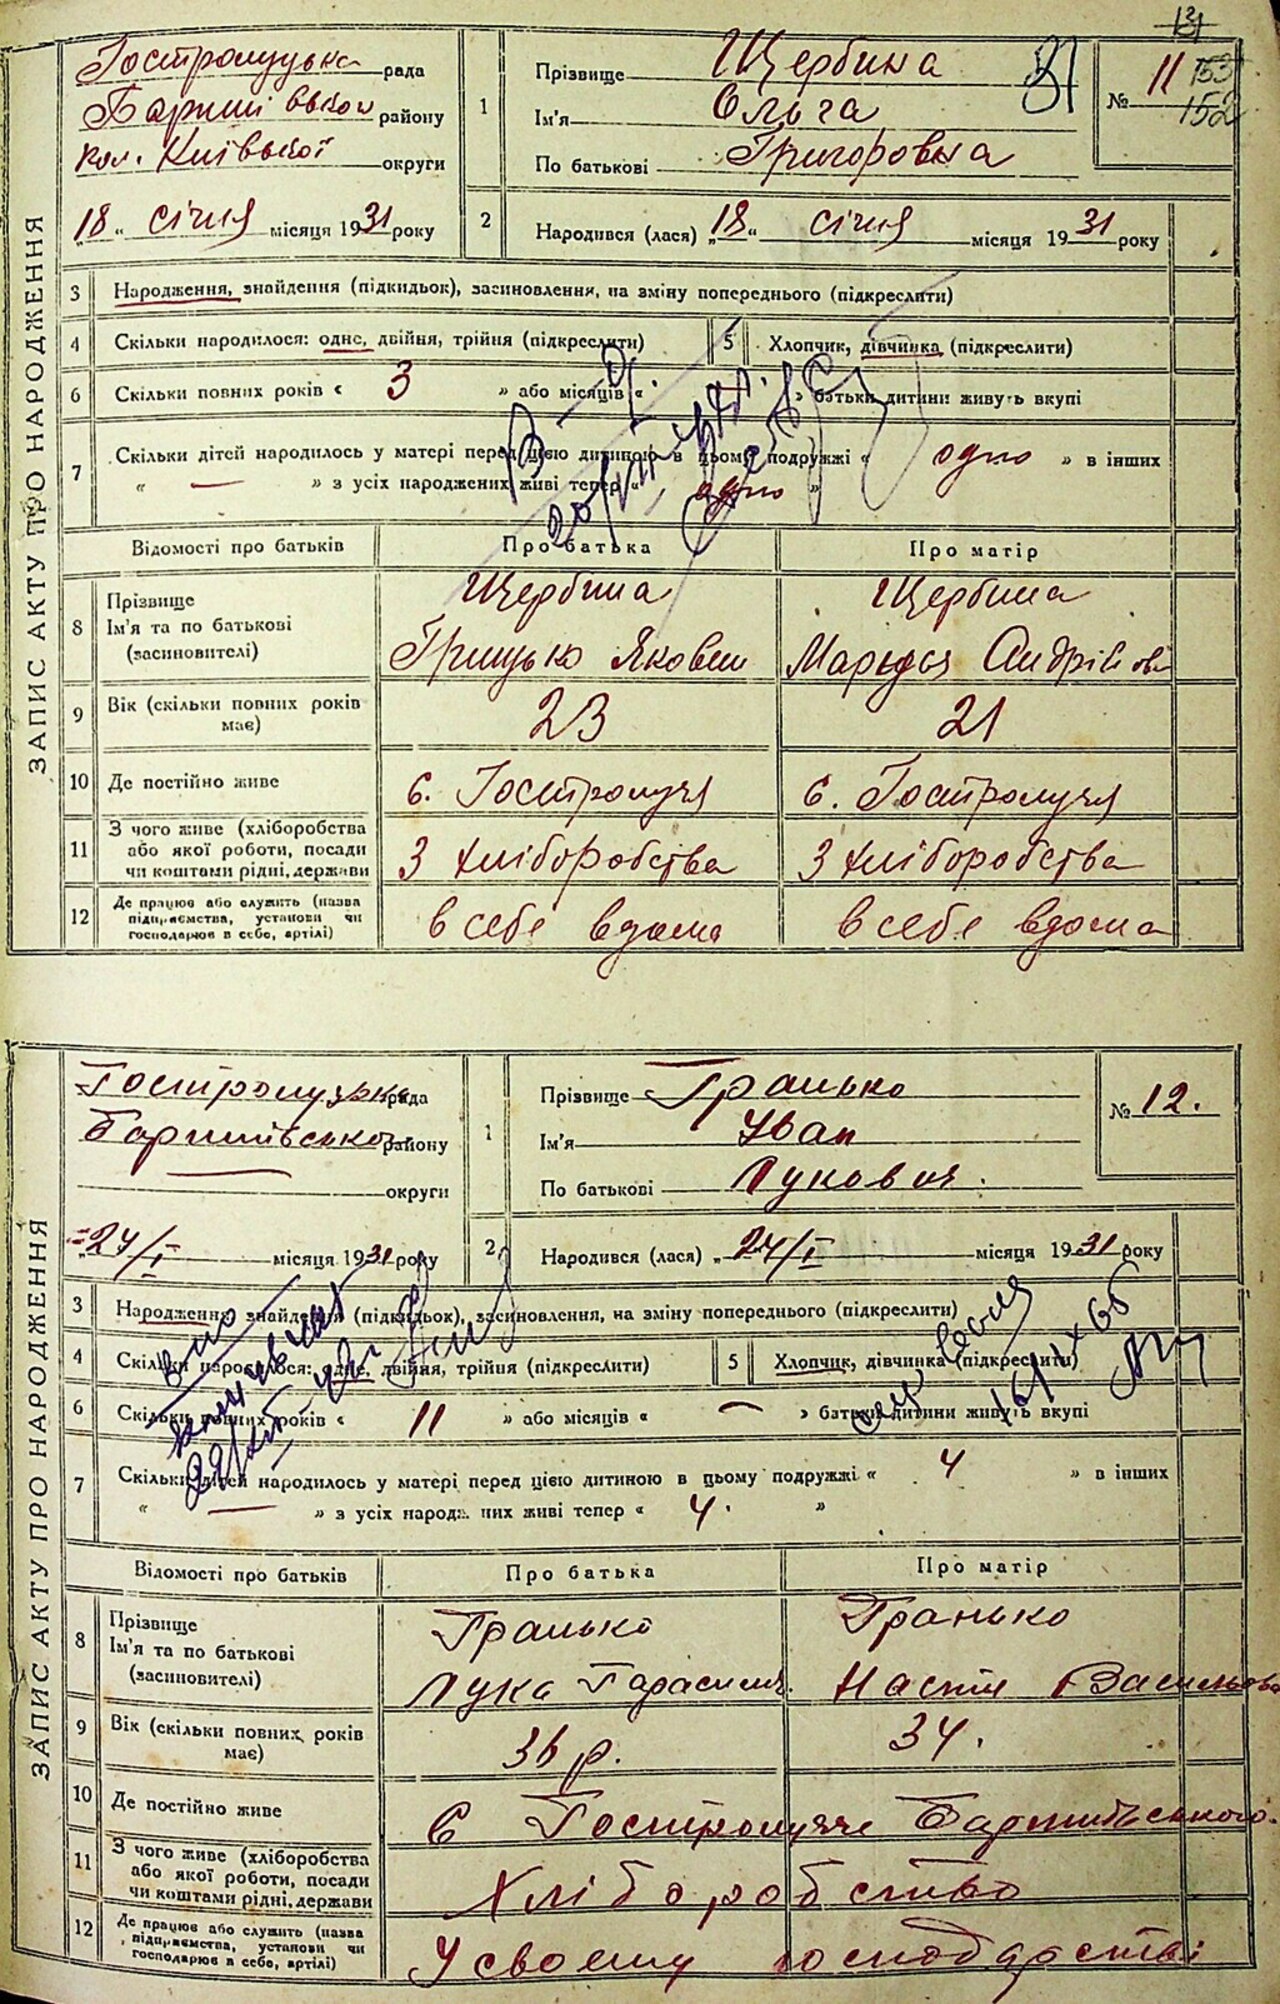 ЗАПИС АКТУ ПРО НАРОДЖЕННЯ
Гостролуцька рада
району
кол. Київської округи
„18“ січня місяця 1931 року
1
Прізвище Щербина
Ім'я Ольга
По батькові Григоровна
31
№ 11
153
152
2
Народився (лася) „18“ січня місяця 1931 року
3 Народження, знайдення (підкидьок), засиновлення, на зміну попереднього (підкреслити)
4 Скільки народилося: одне, двійня, трійня (підкреслити)
5 Хлопчик, дівчинка (підкреслити)
6 Скільки повних років « 3 » або місяців « » батьки дитини живуть вкупі
7 Скільки дітей народилось у матері перед цією дитиною в цьому подружжі « одно » в інших
« — » з усіх народжених живі тепер « одно »
Відомості про батьків Про батька Про матір
8 Прізвище Щербина Щербина
Ім'я та по батькові
(засиновителі) Грицько Якович Маруся Андріївна
9 Вік (скільки повних років має) 23 21
10 Де постійно живе с. Гостролуччя с. Гостролуччя
11 З чого живе (хліборобства
або якої роботи, посади
чи коштами рідні, держави З хліборобства З хліборобства
12 Де працює або служить (назва
підприємства, установи чи
господарює в себе, артілі) в себе вдома в себе вдома
ЗАПИС АКТУ ПРО НАРОДЖЕННЯ
Гостролуцька рада
Баришівського району
— округи
24/I місяця 1931 року
1
Прізвище Гранько
Ім'я Иван
По батькові Лукович.
№ 12.
2
Народився (лася) „24/I місяця 1931 року
3 Народження, знайдення (підкидьок), засиновлення, на зміну попереднього (підкреслити)
4 Скільки народилося: одне, двійня, трійня (підкреслити)
5 Хлопчик, дівчинка (підкреслити)
6 Скільки повних років « 11 » або місяців « — » батьки дитини живуть вкупі
7 Скільки дітей народилось у матері перед цією дитиною в цьому подружжі « 4 » в інших
« — » з усіх народжених живі тепер « 4. »
Відомості про батьків Про батька Про матір
8 Прізвище Гранько Гранько
Ім'я та по батькові
(засиновителі) Лука Тарасович. Настя Васильовна
9 Вік (скільки повних років має) 36 р. 34.
10 Де постійно живе С Гостролуччє Баришівського.
11 З чого живе (хліборобства
або якої роботи, посади
чи коштами рідні, держави Хліборобство
12 Де працює або служить (назва
підприємства, установи чи
господарює в себе, артілі) У своєму господарстві